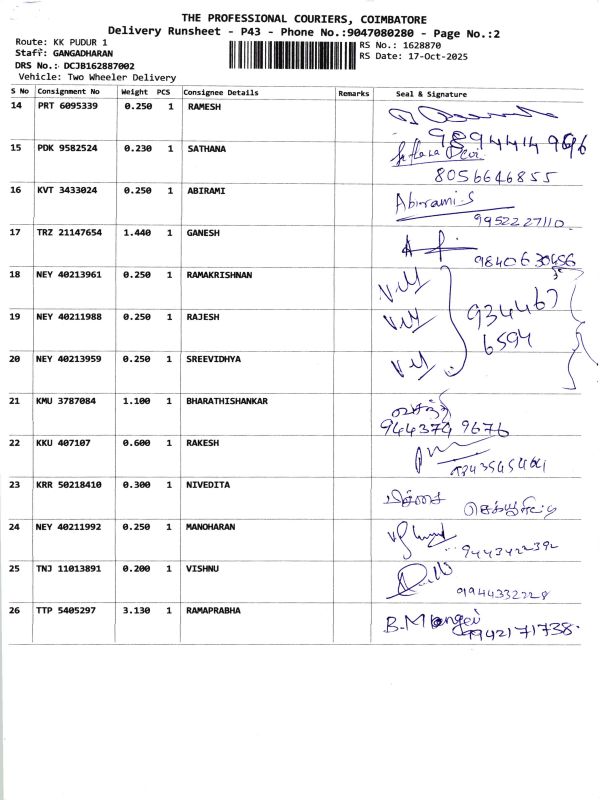 THE PROFESSIONAL COURIERS, COIMBATORE
Delivery Runsheet - P43 - Phone No.:9047080280 - Page No.:2
Route: KK PUDUR 1
RS No.: 1628870
Staff: GANGADHARAN
RS Date: 17-Oct-2025
DRS No.: DCJB162887002
Vehicle: Two Wheeler Delivery
S No Consignment No Weight PCS Consignee Details Remarks Seal & Signature
14 PRT 6095339 0.250 1 RAMESH
15 PDK 9582524 0.230 1 SATHANA
8056646855
16 KVT 3433024 0.250 1 ABIRAMI Abirami.S
9952227110
17 TRZ 21147654 1.440 1 GANESH
9840630456
18 NEY 40213961 0.250 1 RAMAKRISHNAN
19 NEY 40211988 0.250 1 RAJESH 934467
6594
20 NEY 40213959 0.250 1 SREEVIDHYA
21 KMU 3787084 1.100 1 BHARATHISHANKAR
944379 9676
22 KKU 407107 0.600 1 RAKESH
23 KRR 50218410 0.300 1 NIVEDITA
24 NEY 40211992 0.250 1 MANOHARAN
9443422392
25 TNJ 11013891 0.200 1 VISHNU
9194433 2228
26 TTP 5405297 3.130 1 RAMAPRABHA B.Mangai
9942171738